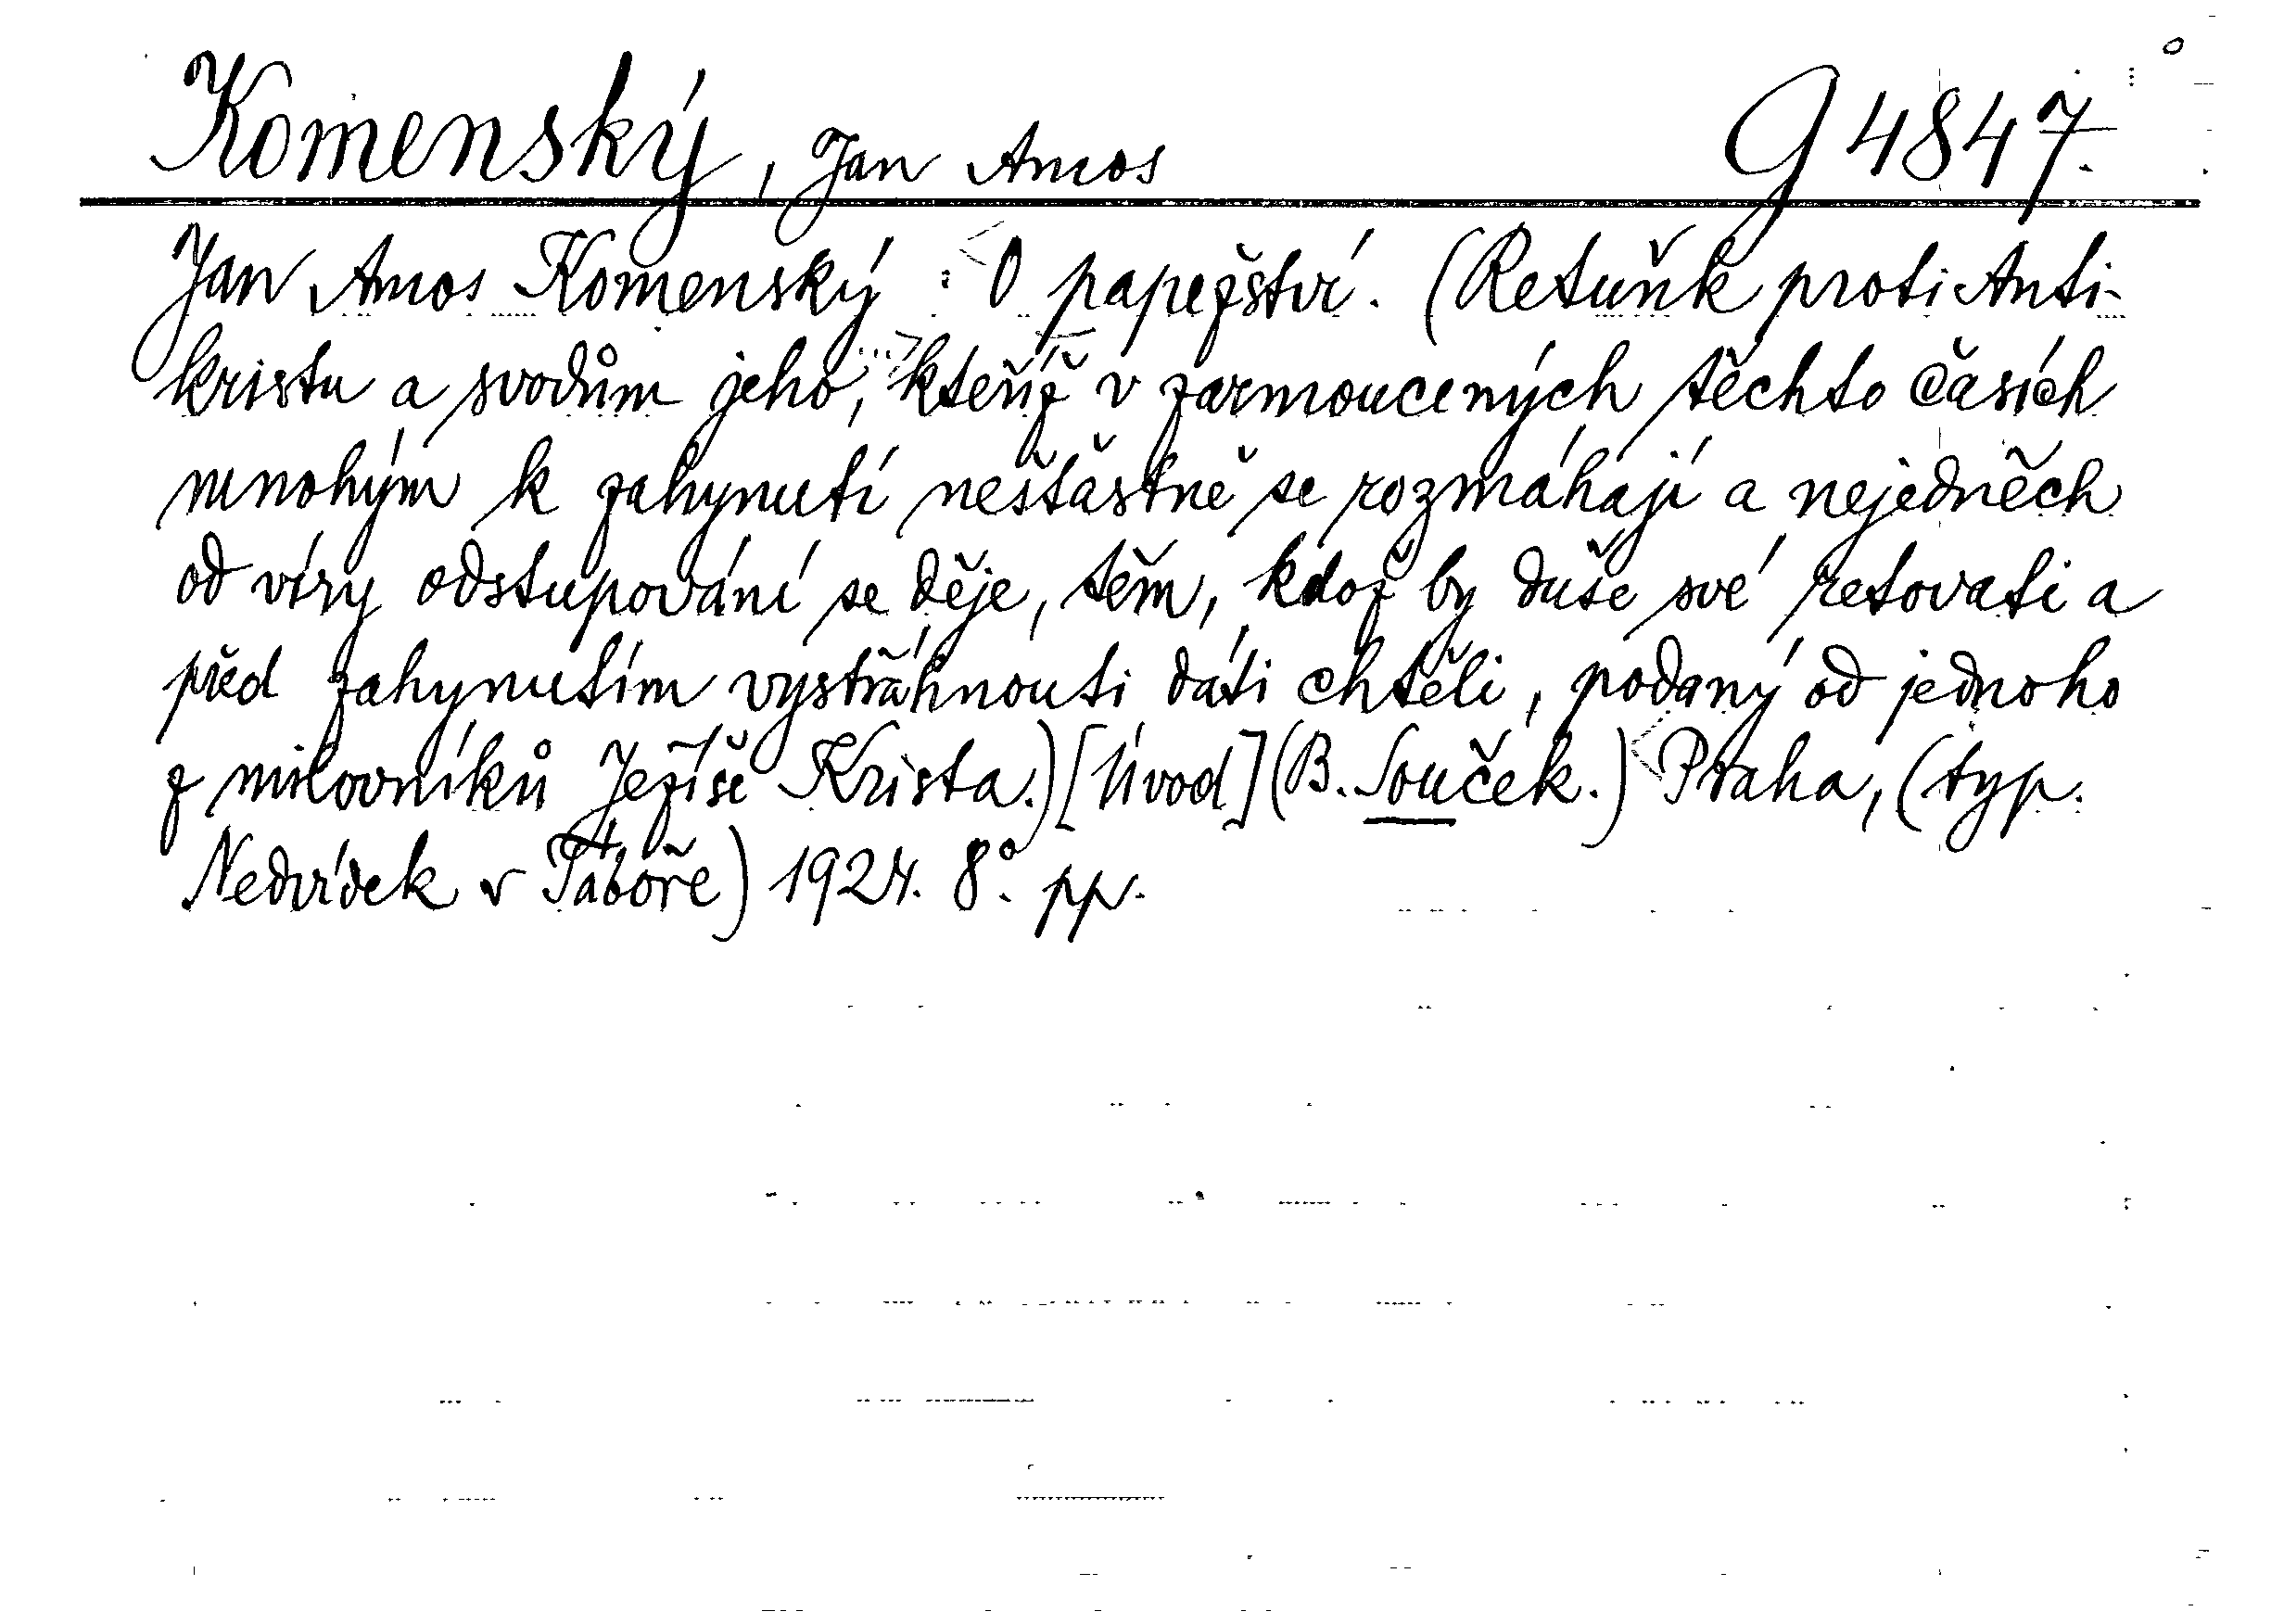 Komenský, Jan Amos G 4847.
Jan Amos Komenský: O papežství. (Retuňk proti Anti-
kristu a svodům jeho, kteříž v zarmoucených těchto časích
mnohým k zahynutí nešťastně se rozmáhají a nejedněch
od víry odstupování se děje, těm, kdož by duše své retovati a
před zahynutím vystříhnouti dáti chtěli, podaný od jednoho
z milovníků Ježíše Krista.) [Úvod] (B. Souček.) Praha, (typ.
Nedvídek v Táboře) 1924. 8°. pp.